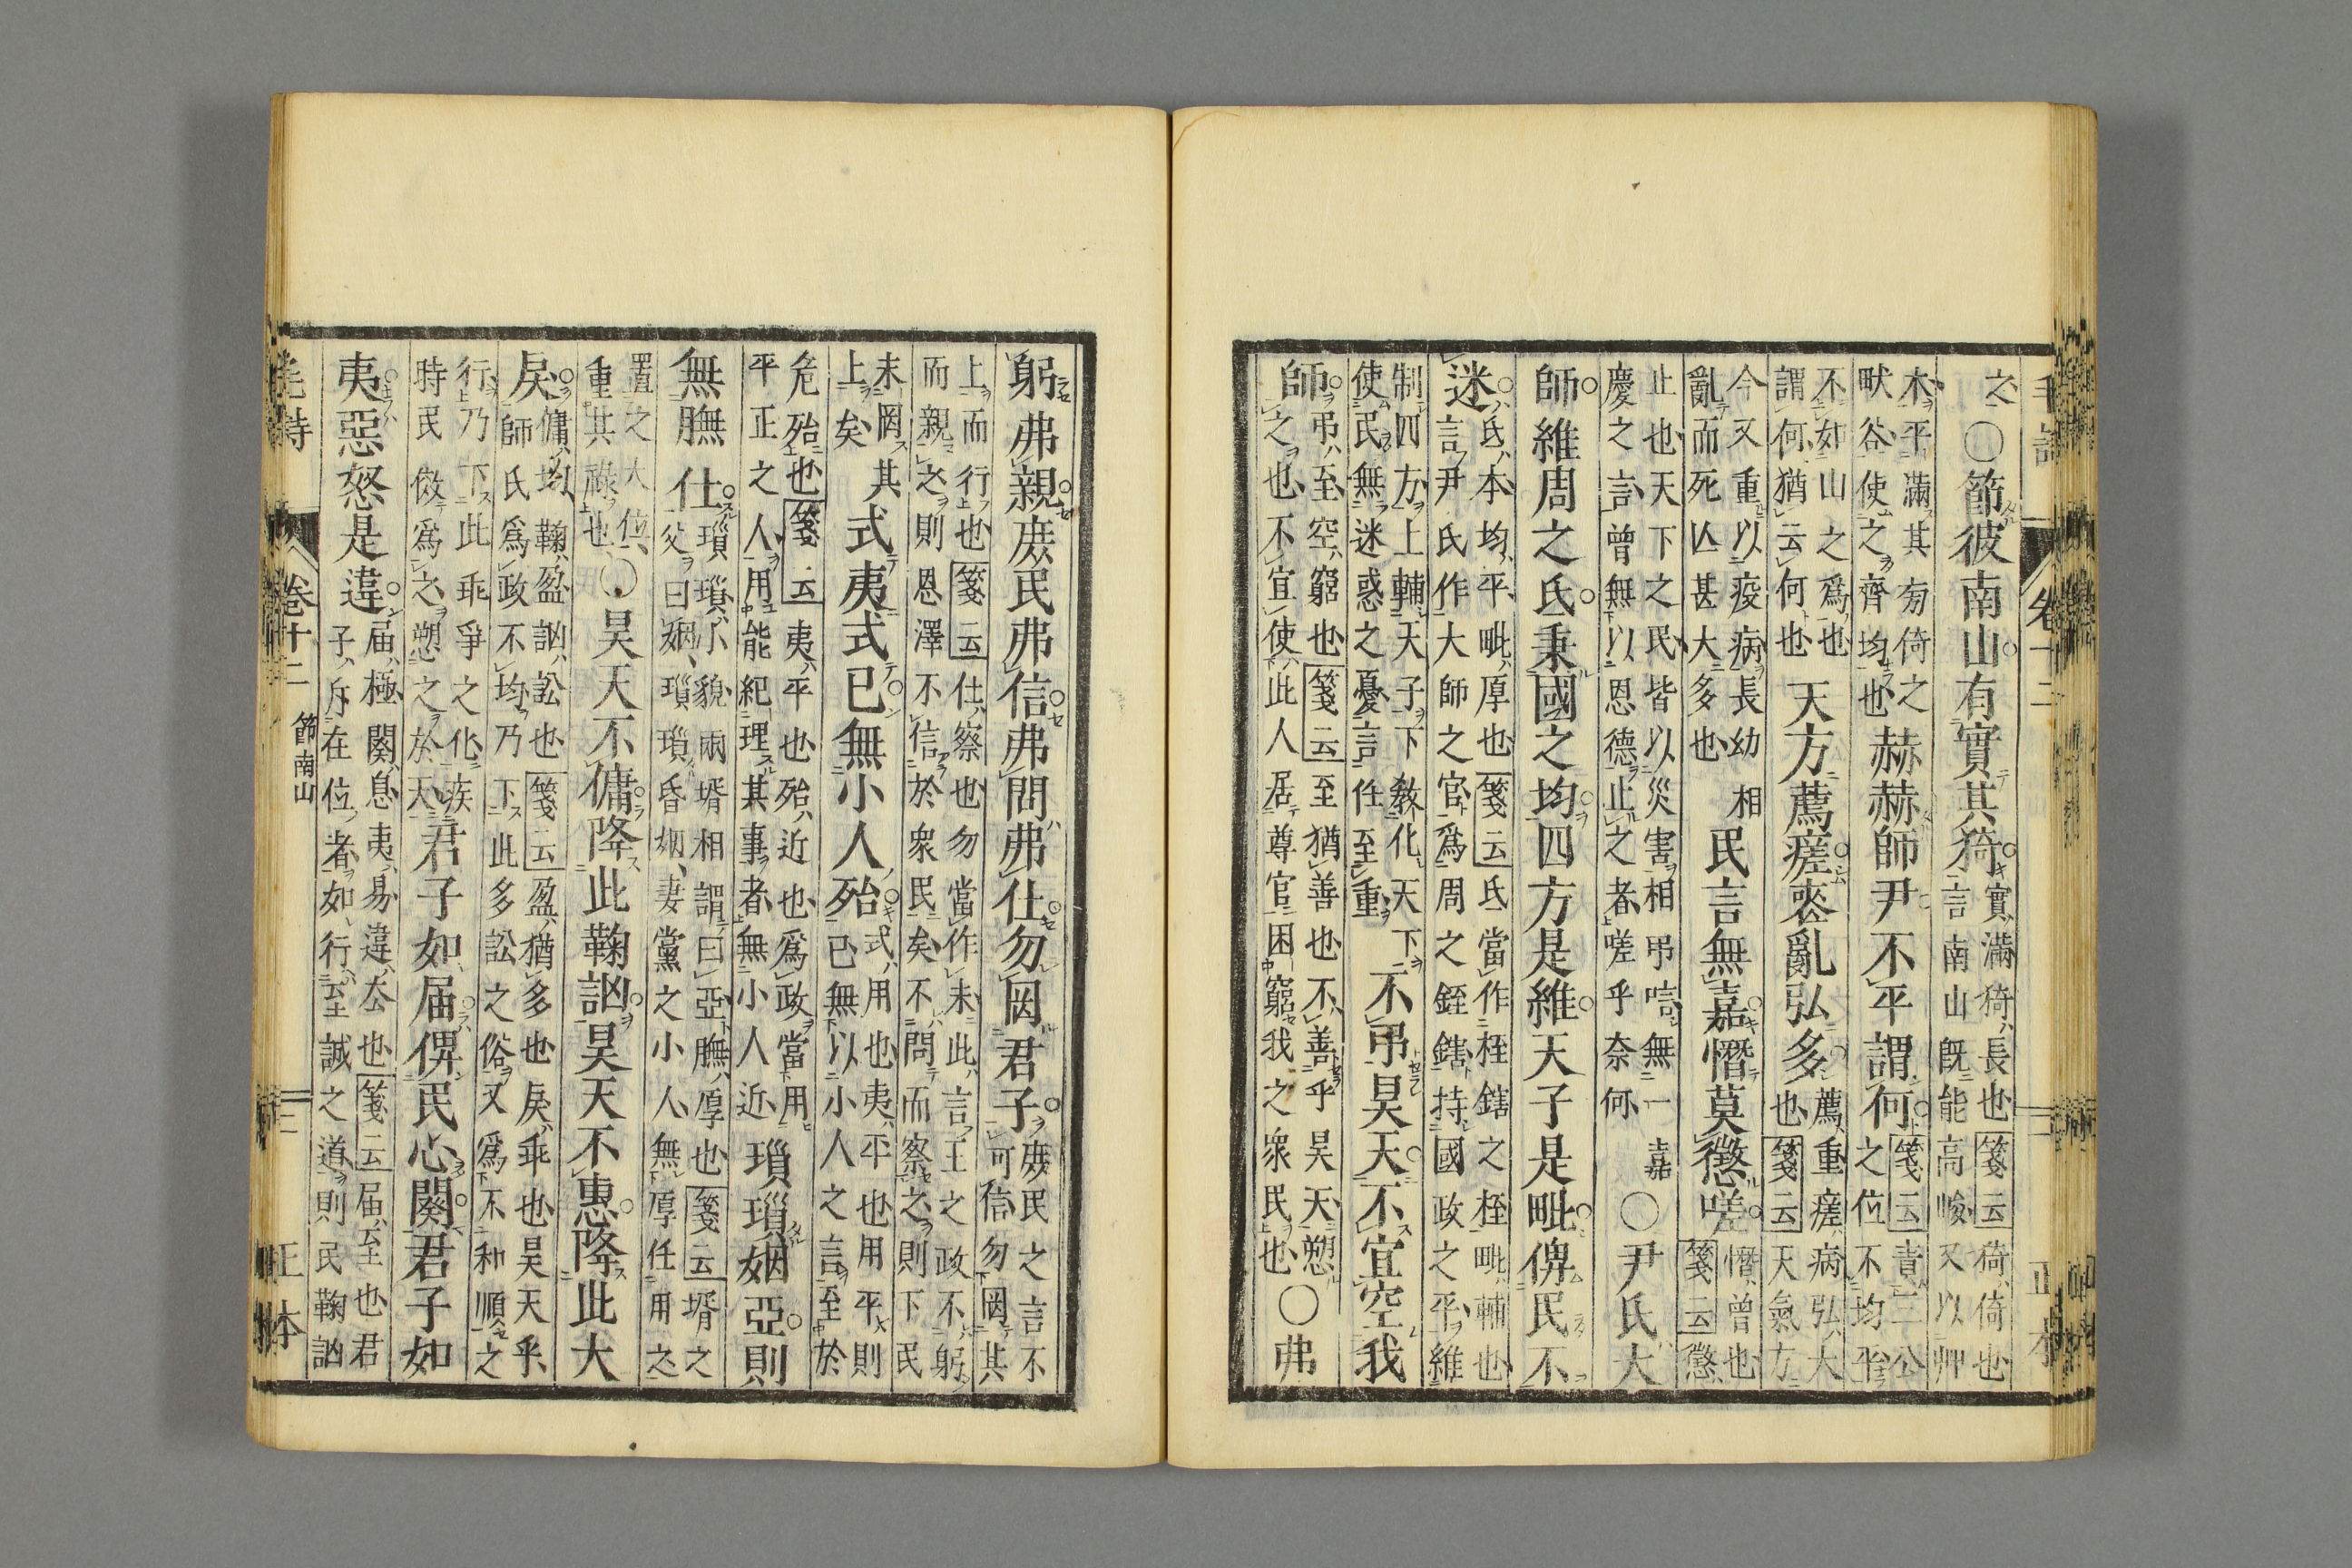 之〇節彼南山有實其猗
實滿猗長也箋云猗倚也
言南山既能高峻又以艸
木平滿其旁倚之
畎谷使之齊均也
赫赫師尹不平謂何
箋云責三公
之位不均平
不如山之爲也
謂何猶云何也
天方薦瘥喪亂弘多
薦重瘥病弘大
也箋云天氣方
今又重以疫病長幼相
亂而死亾甚大多也
民言無嘉憯莫懲嗟
憯曾也
箋云懲
止也天下之民皆以災害相弔唁無一嘉
慶之言曾無以恩德止之者嗟乎奈何
〇尹氏大
師維周之氐秉國之均四方是維天子是毗俾民不
迷
氐本均平毗厚也箋云氐當作桎鎋之桎毗輔也
言尹氏作大師之官爲周之銍鎋持國政之平維
制四方上輔天子下敎化天下
使民無迷惑之憂言任至重
不弔昊天不宜空我
師
弔至空窮也箋云至猶善也不善乎昊天愬
之也不宜使此人居尊官困窮我之衆民也
〇弗
躬弗親庶民弗信弗問弗仕勿罔君子
庶民之言不
可信勿罔其
上而行也箋云仕察也勿當作末此言王之政不躬
而親之則恩澤不信於衆民矣不問而察之則下民
末罔其
上矣
式夷式已無小人殆
式用也夷平也用平則
已無以小人之言至於
危殆也箋云夷平也殆近也爲政當用
平正之人用能紀理其事者無小人近
瑣瑣姻亞則
無膴仕
瑣瑣小貌兩壻相謂曰亞膴厚也箋云壻之
父曰姻瑣瑣昏姻妻黨之小人無厚任用之
置之大位
重其祿也
〇昊天不傭降此鞠訩昊天不惠降此大
戾
傭均鞠盈訩訟也箋云盈猶多也戾乖也昊天乎
師氏爲政不均乃下此多訟之俗又爲不和順之
行乃下此乖爭之化疾
時民傚爲之愬之於天
君子如届俾民心闋君子如
夷惡怒是違
届極闋息夷易違去也箋云届至也君
子斥在位者如行至誠之道則民鞠訩
毛詩 卷十二 節南山 二 正本